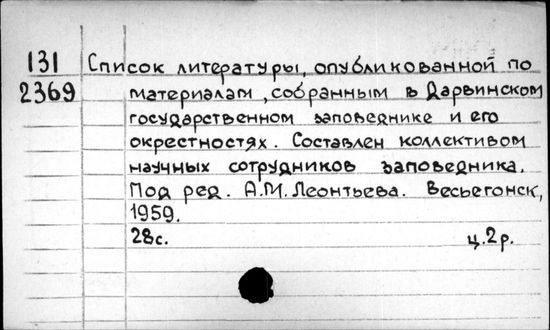 131 Список литературы, опубликованной по
2369 материалам, собранным в Дарвинском
государственном заповеднике и его
окрестностях. Составлен коллективом
научных сотрудников заповедника.
Под ред. А.М.Леонтьева. Весьегонск,
1959.
28с. ц.2р.